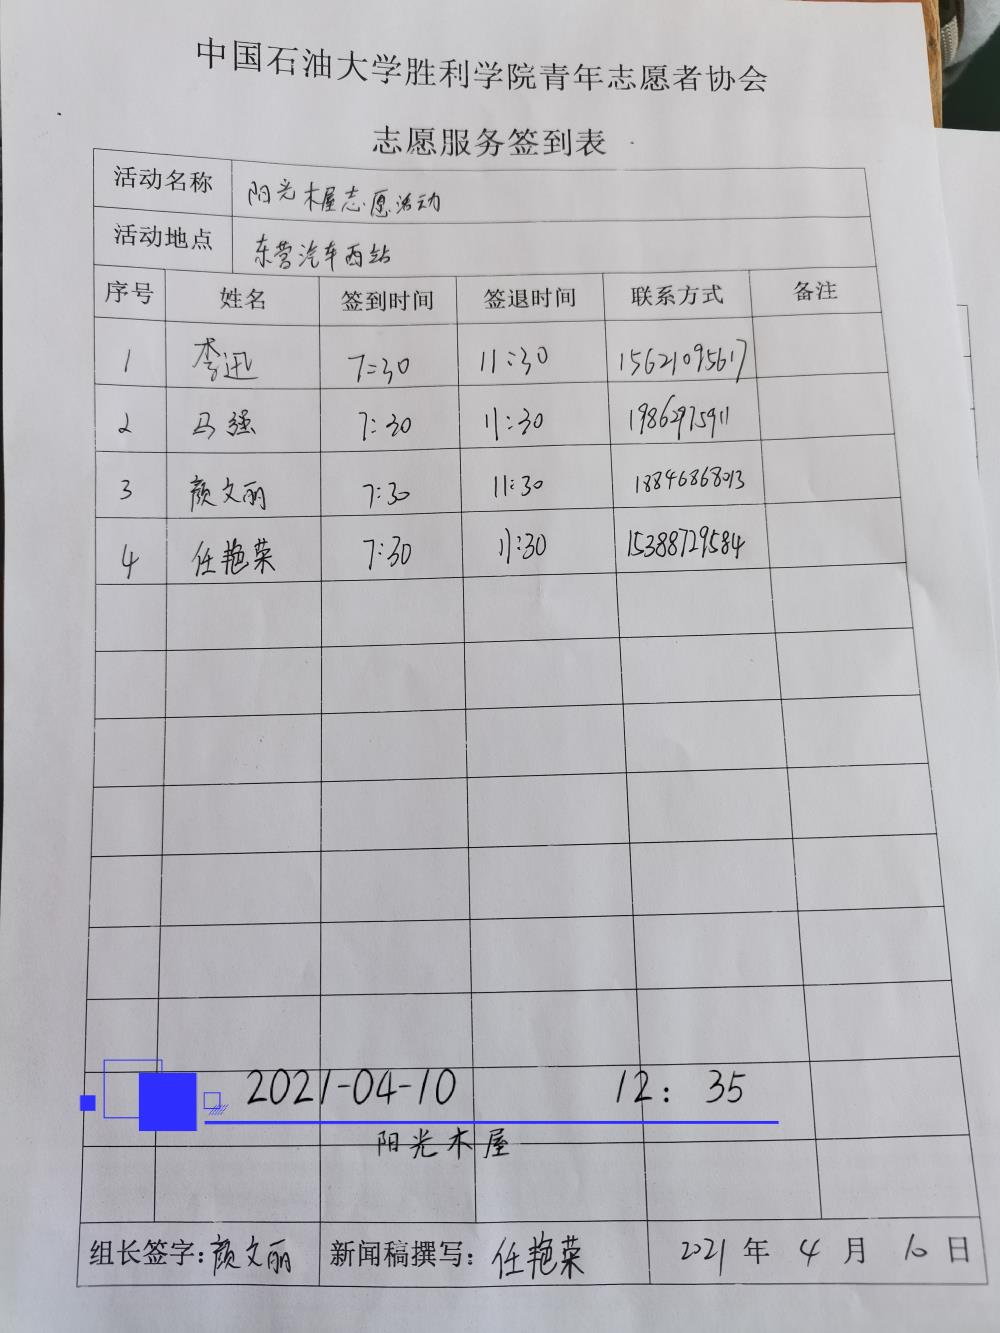 中国石油大学胜利学院青年志愿者协会
志愿服务签到表
活动名称 阳光木屋志愿活动
活动地点 东营汽车西站
序号 姓名 签到时间 签退时间 联系方式 备注
1 李迅 7:30 11:30 15621095617
2 马强 7:30 11:30 19862975911
3 颜文丽 7:30 11:30 18846868013
4 任艳荣 7:30 11:30 15388729584
2021-04-10 12: 35
阳光木屋
组长签字:颜文丽 新闻稿撰写:任艳荣 2021年4月10日